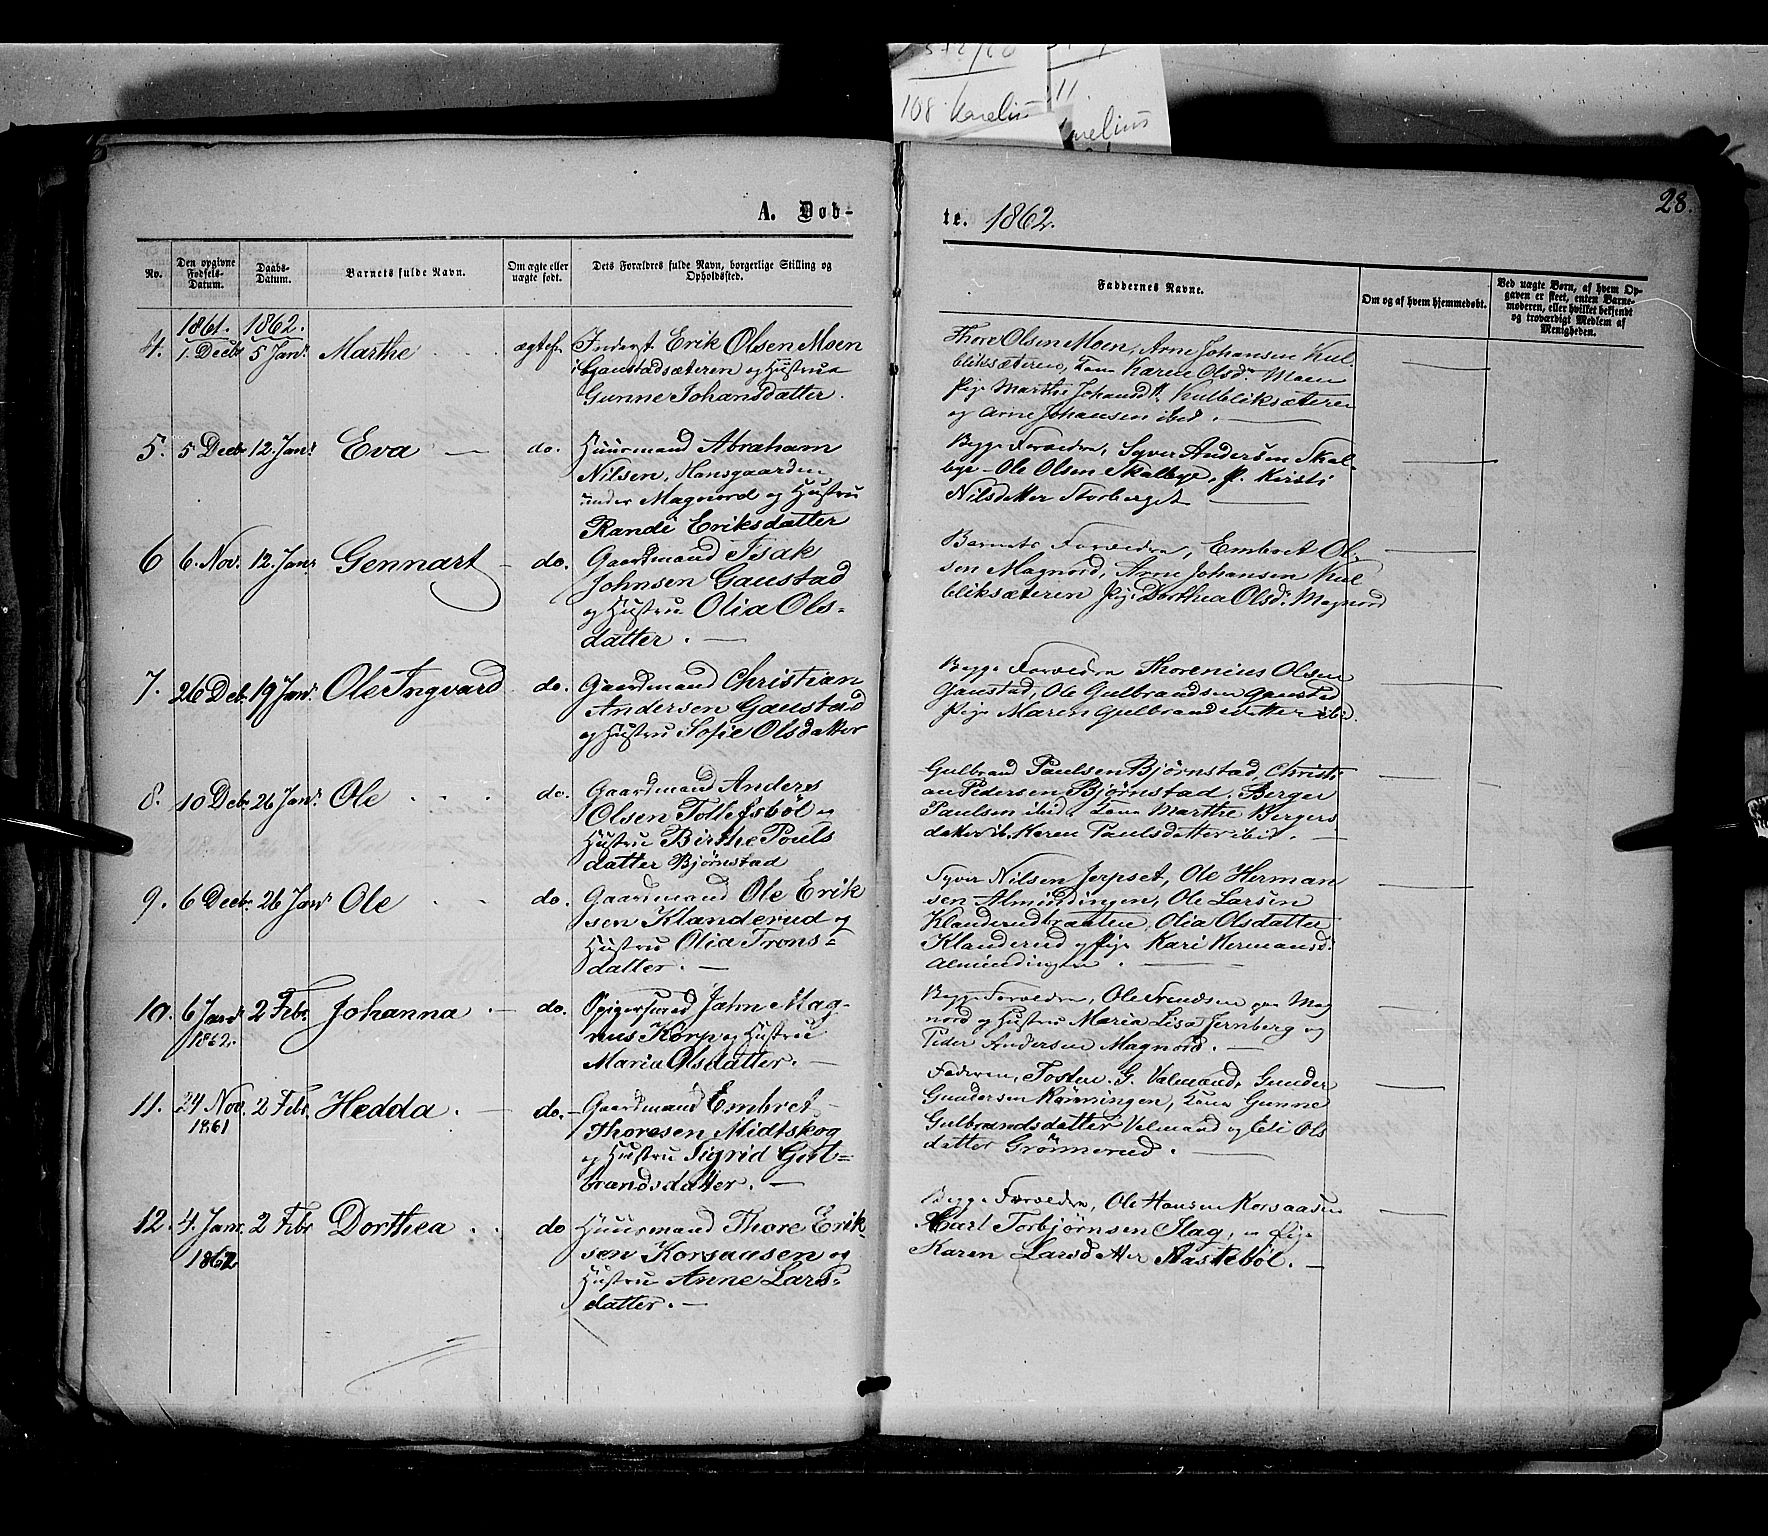 108 Karelius
11.
A. Døb-
te. 1862.
28.
No.
Den opgivne Fødsels-Datum.
Daabs-Datum.
Barnets fulde Navn.
Om ægte eller uægte født.
Dets Forældres fulde Navn, borgerlige Stilling og Opholdssted.
Faddernes Navne.
Om og af hvem hjemmedøbt.
Ved uægte Børn, af hvem Op-
gaven er skeet, enten Barne-
moderen, eller hvilket bekjendt
og troværdigt Medlem af
Menigheden.
1861. 1862.
4. 1 Decbr 5 Janr Marthe ægtef. Inderst Erik Olsen Moen
i Gaustadsæteren og Hustrue
Gunne Johansdatter.
Thore Olsen Moen, Arne Johansen Kul-
bliksæteren, Kone Karen Olsdr Moen
Pige Marthe Johansdtr Kulbliksæteren
og Arne Johansen ibid.
5. 5 Decbr 12. Janr Eva do. Huusmand Abraham
Nilsen, Hansgaarden
under Magnord og Hustru
Randi Eriksdatter
Begge Forældre, Syver Andersen Skal-
bye - Ole Olsen Skalbye, P. Kirsti
Nilsdatter Storberget
6 6. Nov. 12. Janr Gennart do. Gaardmand Isak
Johnsen Gaustad
og Hustru Olia Ols-
datter.
Barnets Forældre, Embret Ol-
sen Magnord, Arne Johansen Kul
bliksæteren Pige Dorthea Olsdr Magnord
7. 26 Deb. 19 Janr. Ole Ingvard do. Gaardmand Christian
Andersen Gaustad
og Hustru Sofie Olsdatter
Begge Forældre Thorenius Olsen
Gaustad, Ole Gulbrandsen Gaustad
Pige Maren Gulbrandsdatter ibi.
8. 10 Deb. 26 Janr. Ole do. Gaardmand Anders
Olsen Tollefsbøl og
Hustru Birthe Pouls
datter Bjørnstad
Gulbrand Paulsen Bjørnstad, Christi
an Pedersen Bjørnstad, Berger
Paulsen ibid, Kone Marthe Bergers
datter ib. Karen Paulsdatter ibid.
9. 6 Decbr. 26 Janr Ole do. Gaardmand Ole Erik
sen Klanderud og
Hustru Olia Trons-
datter.
Syver Nilsen Jerpset, Ole Herman
sen Almindingen, Ole Larsen
Klanderudbraaten, Olia Olsdatter
Klanderud og Pige Kari Hermansd.
Almindingen.
10. 6 Janr 2 Febr Johanna do. Jahn Mag-
1862. nus Korp og Hustru
Maria Olsdatter.
Begge Forældre, Ole Svendsen paa Mag
nord og Hustru Maria Lisa Jernberg og
Peder Andersen Magnord.
11. 24 Nov. 2 Febr Hedda. do. Gaardmand Embret
1861 Thoresen Midtskog
og Hustru Sigrid Gul-
brandsdatter.
Faderen, Tosten G. Valmand, Gunder
Gundersen Rønningen, Kone Gunne
Gulbrandsdatter Valmand og Eli Ols
datter Grønnerud.
12. 4. Janr 2 Febr Dorthea do Huusmand Thore Erik-
1862 sen Korsaasen og
Hustru Anne Lars-
datter.
Begge Forældre, Ole Hansen Korsaasen
Karl Torbjørnsen Slag, og Pige
Karen Larsdatter Aastebøl.